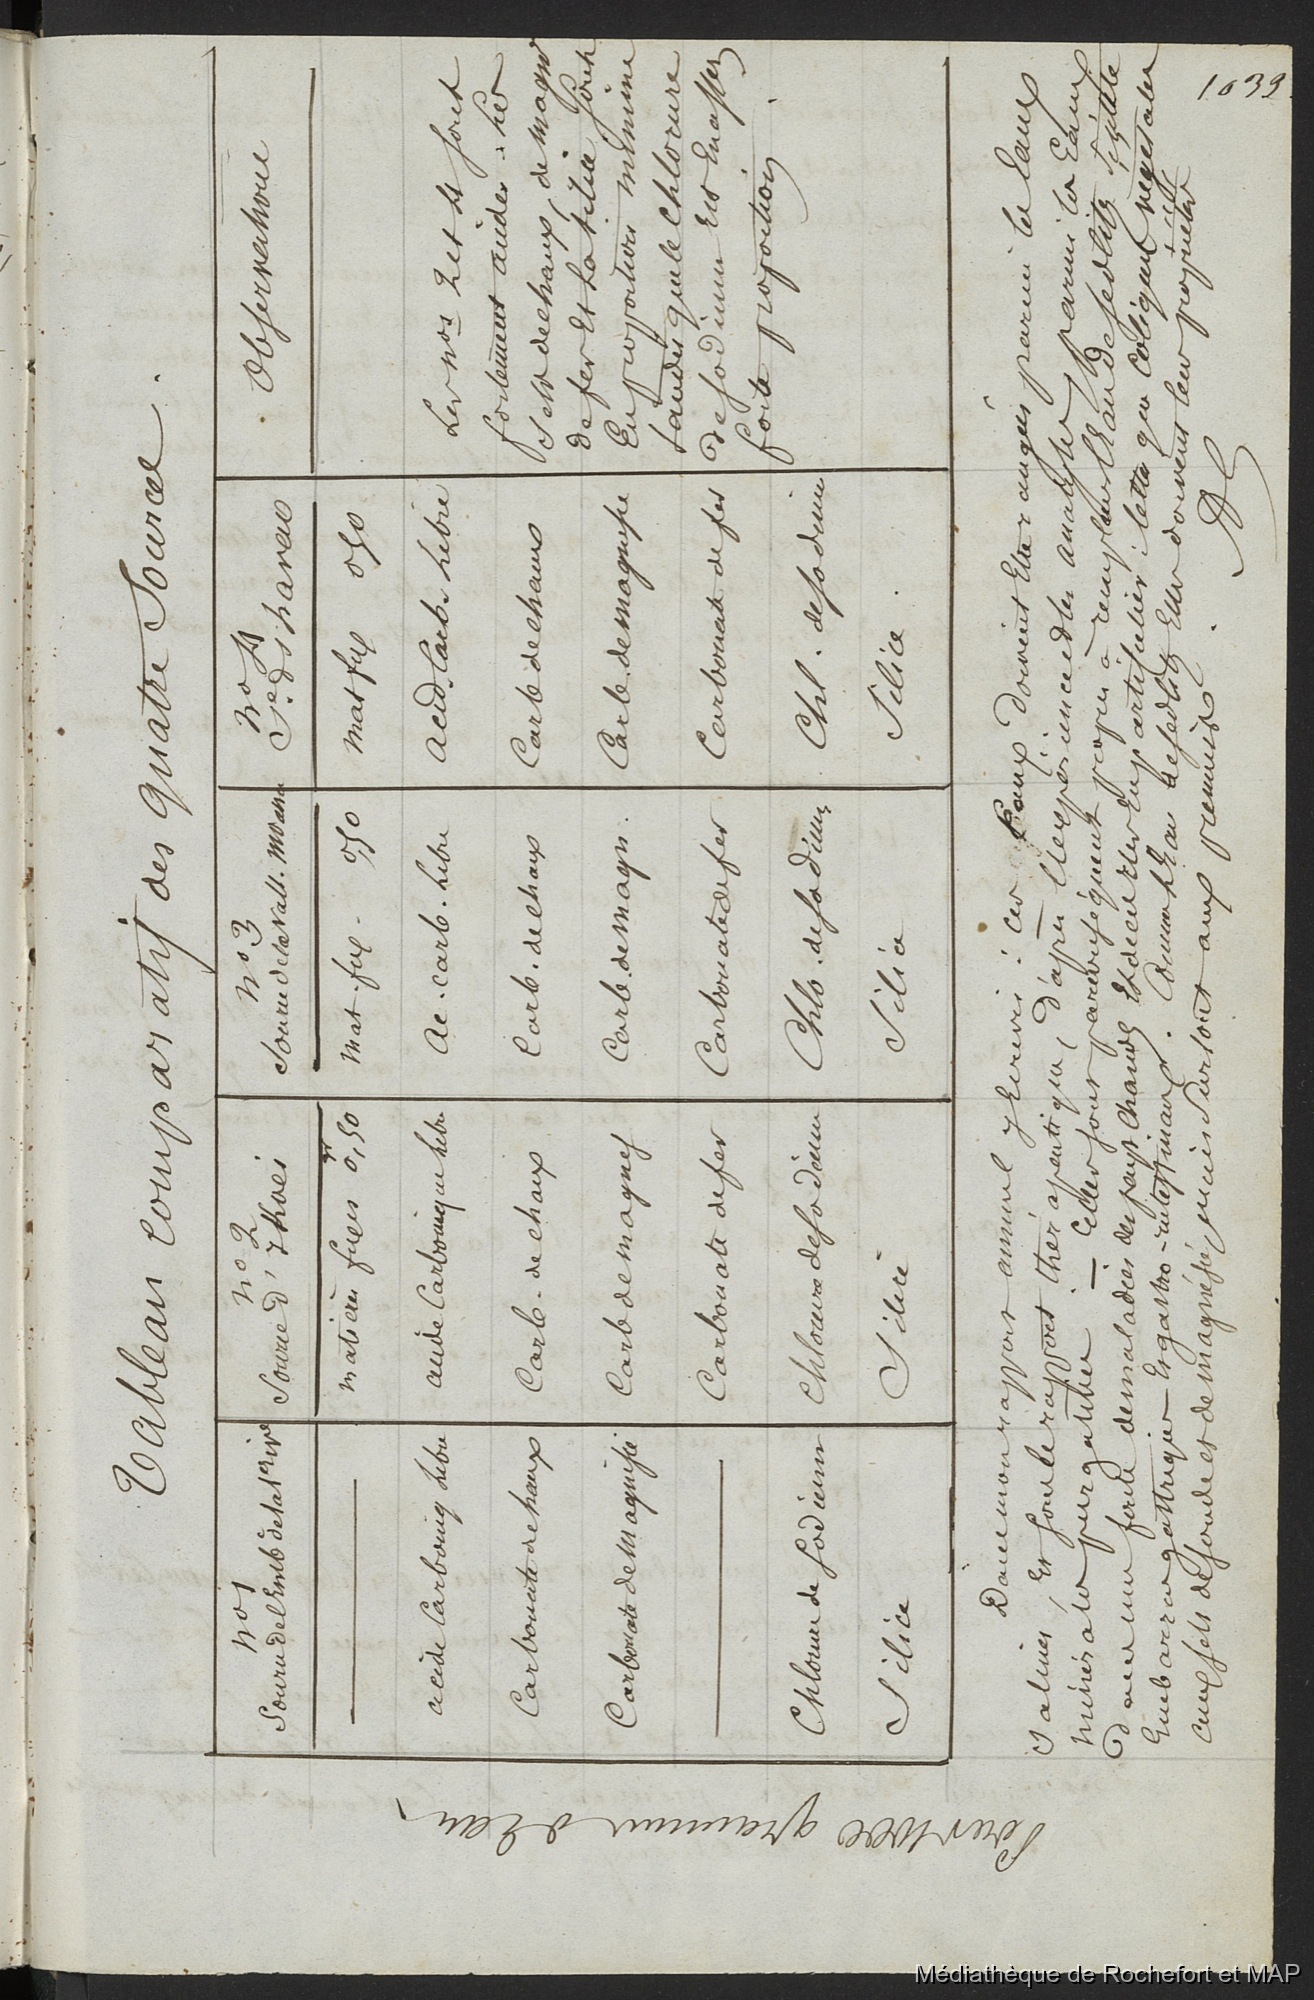 1039
Tableau comparatif des quatre Sources.
Pour 1000 grammes d'Eau.
No 1
Source de l'Emb. de la rive
acide Carboniq libre
Carbonate de chaux
Carbonate de Magnésie
Chlorure de Sodium
Silice
No 2
Source d'
matières fixes 0,50
acide Carbonique libre
Carb. de chaux
Carb de magnes
Carbonate de fer
Chlorure de Sodium
Silice
No 3
Source de la Vall.
Mat. fix. 0,50
Ac. carb. libre
Carb. de chaux
Carb. de magn.
Carbonate de fer
Chlo. de sodium
Silice
No 4
Mat fix 0,50
Acid. Carb. libre
Carb de chaux
Carb. de Magnésie
Carbonate de fer
Chl. de sodium
Silice.
Observations
Les nos 2 et 4 sont
fortement acides : les
Sels de chaux, de magn
de fer et la silice sont
En proportion minime
tandis que le Chlorure
de sodium est En assez
forte proportion.
Dans mon rapport annuel j'écrivis : ces Eaux doivent être rangées parmi les Eaux
salines, et sous le rapport thérapeutique, d'après l'expérience et les analyses, parmi les Eaux
minérales purgatives — Elles sont parcoñséquent propres à remplacer l'Eau de Sedlitz
dans une foule de maladies des pays chauds, Et de Cures En particulier : telles que Coliques végétales
Embarras gastriques — Et gastro-intestinaux. Comme l'Eau de Sedlitz Elles doivent leur propriétés
aux sels de soude et de magnésie, mais surtout aux premiers.
Médiathèque de Rochefort et MAP